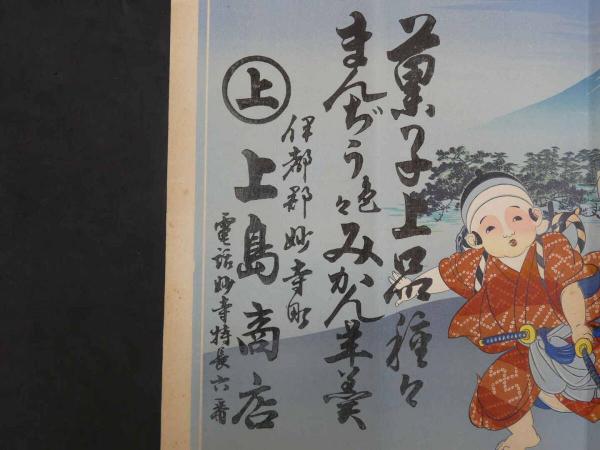 菓子上品種々
まんぢう色々みかん羊羹
伊都郡妙寺町
上 上島商店
電話妙寺特長六番